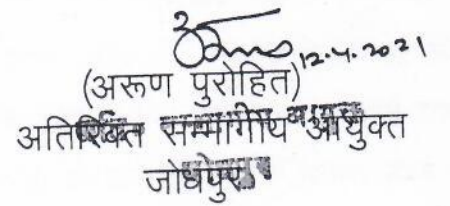 12.4.2021
(अरुण पुरोहित)
अतिरिक्त सम्भागीय आयुक्त
जोधपुर